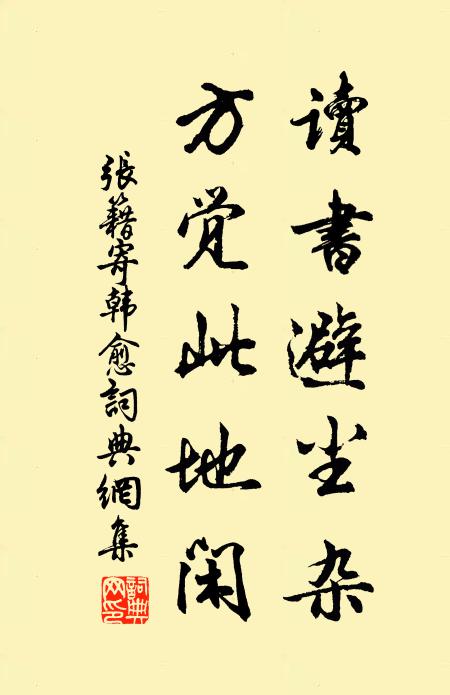 读書避尘杂
方覚此地闲
張籍寄韩愈詞典網集
詞典网印